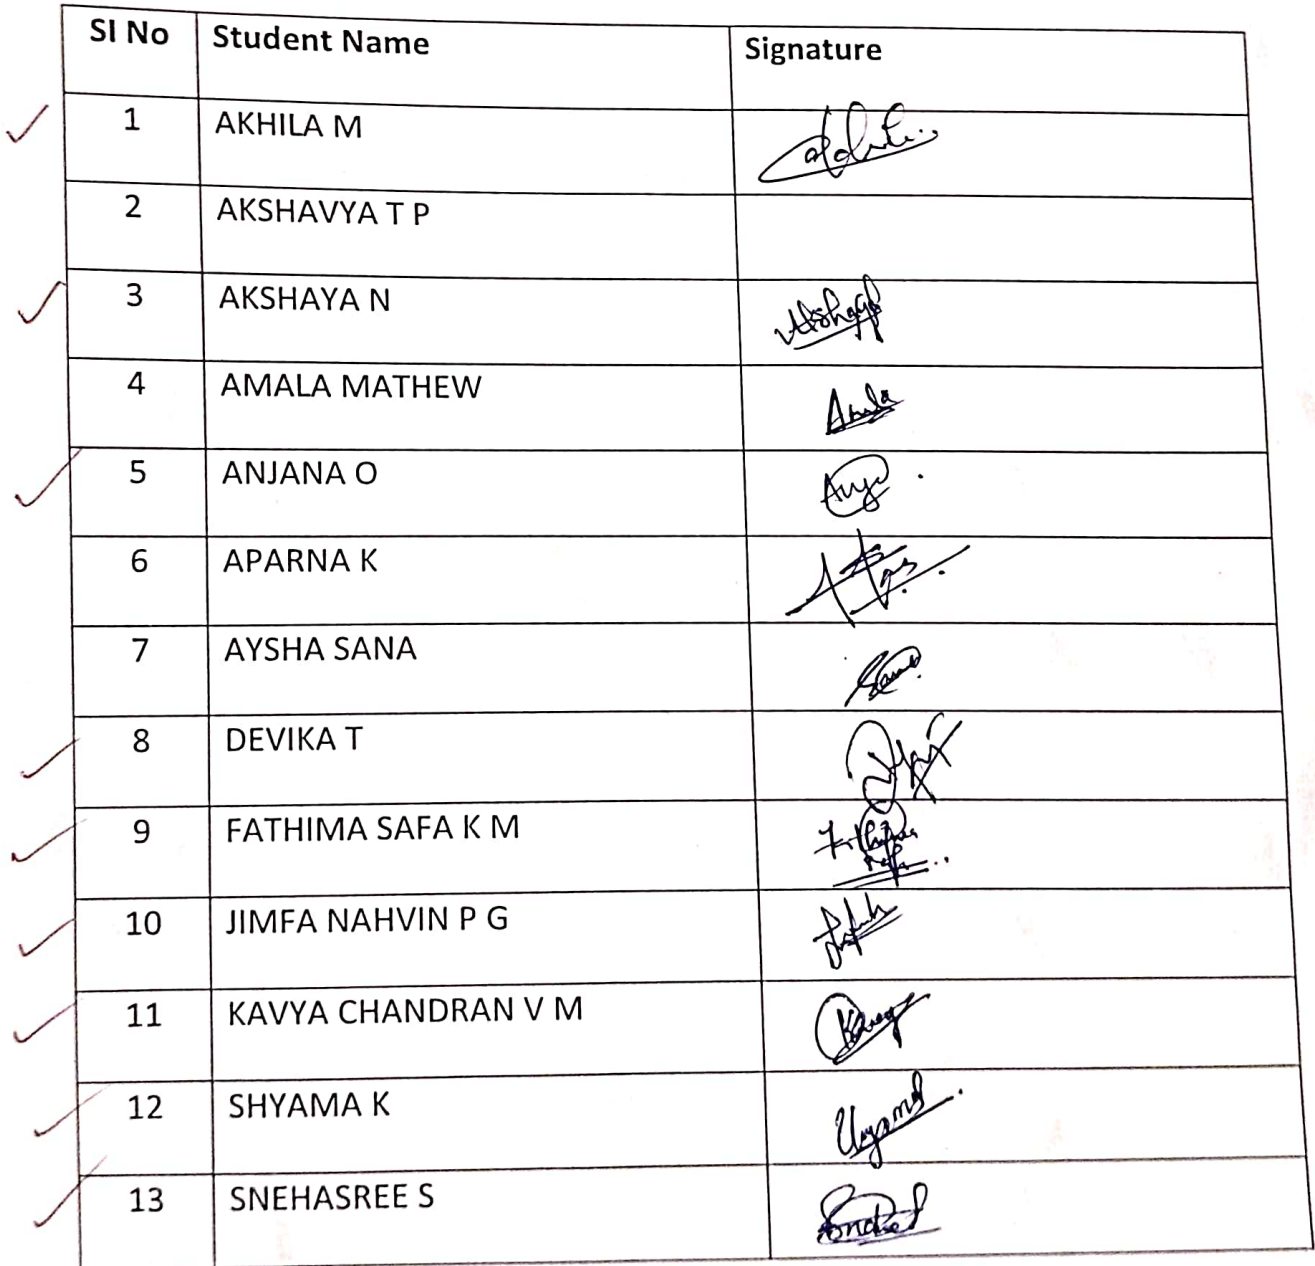 SI No Student Name Signature
1 AKHILA M
2 AKSHAVYA T P
3 AKSHAYA N Akshaya
4 AMALA MATHEW Amala
5 ANJANA O
6 APARNA K
7 AYSHA SANA
8 DEVIKA T
9 FATHIMA SAFA K M Fathima
10 JIMFA NAHVIN P G
11 KAVYA CHANDRAN V M
12 SHYAMA K
13 SNEHASREE S